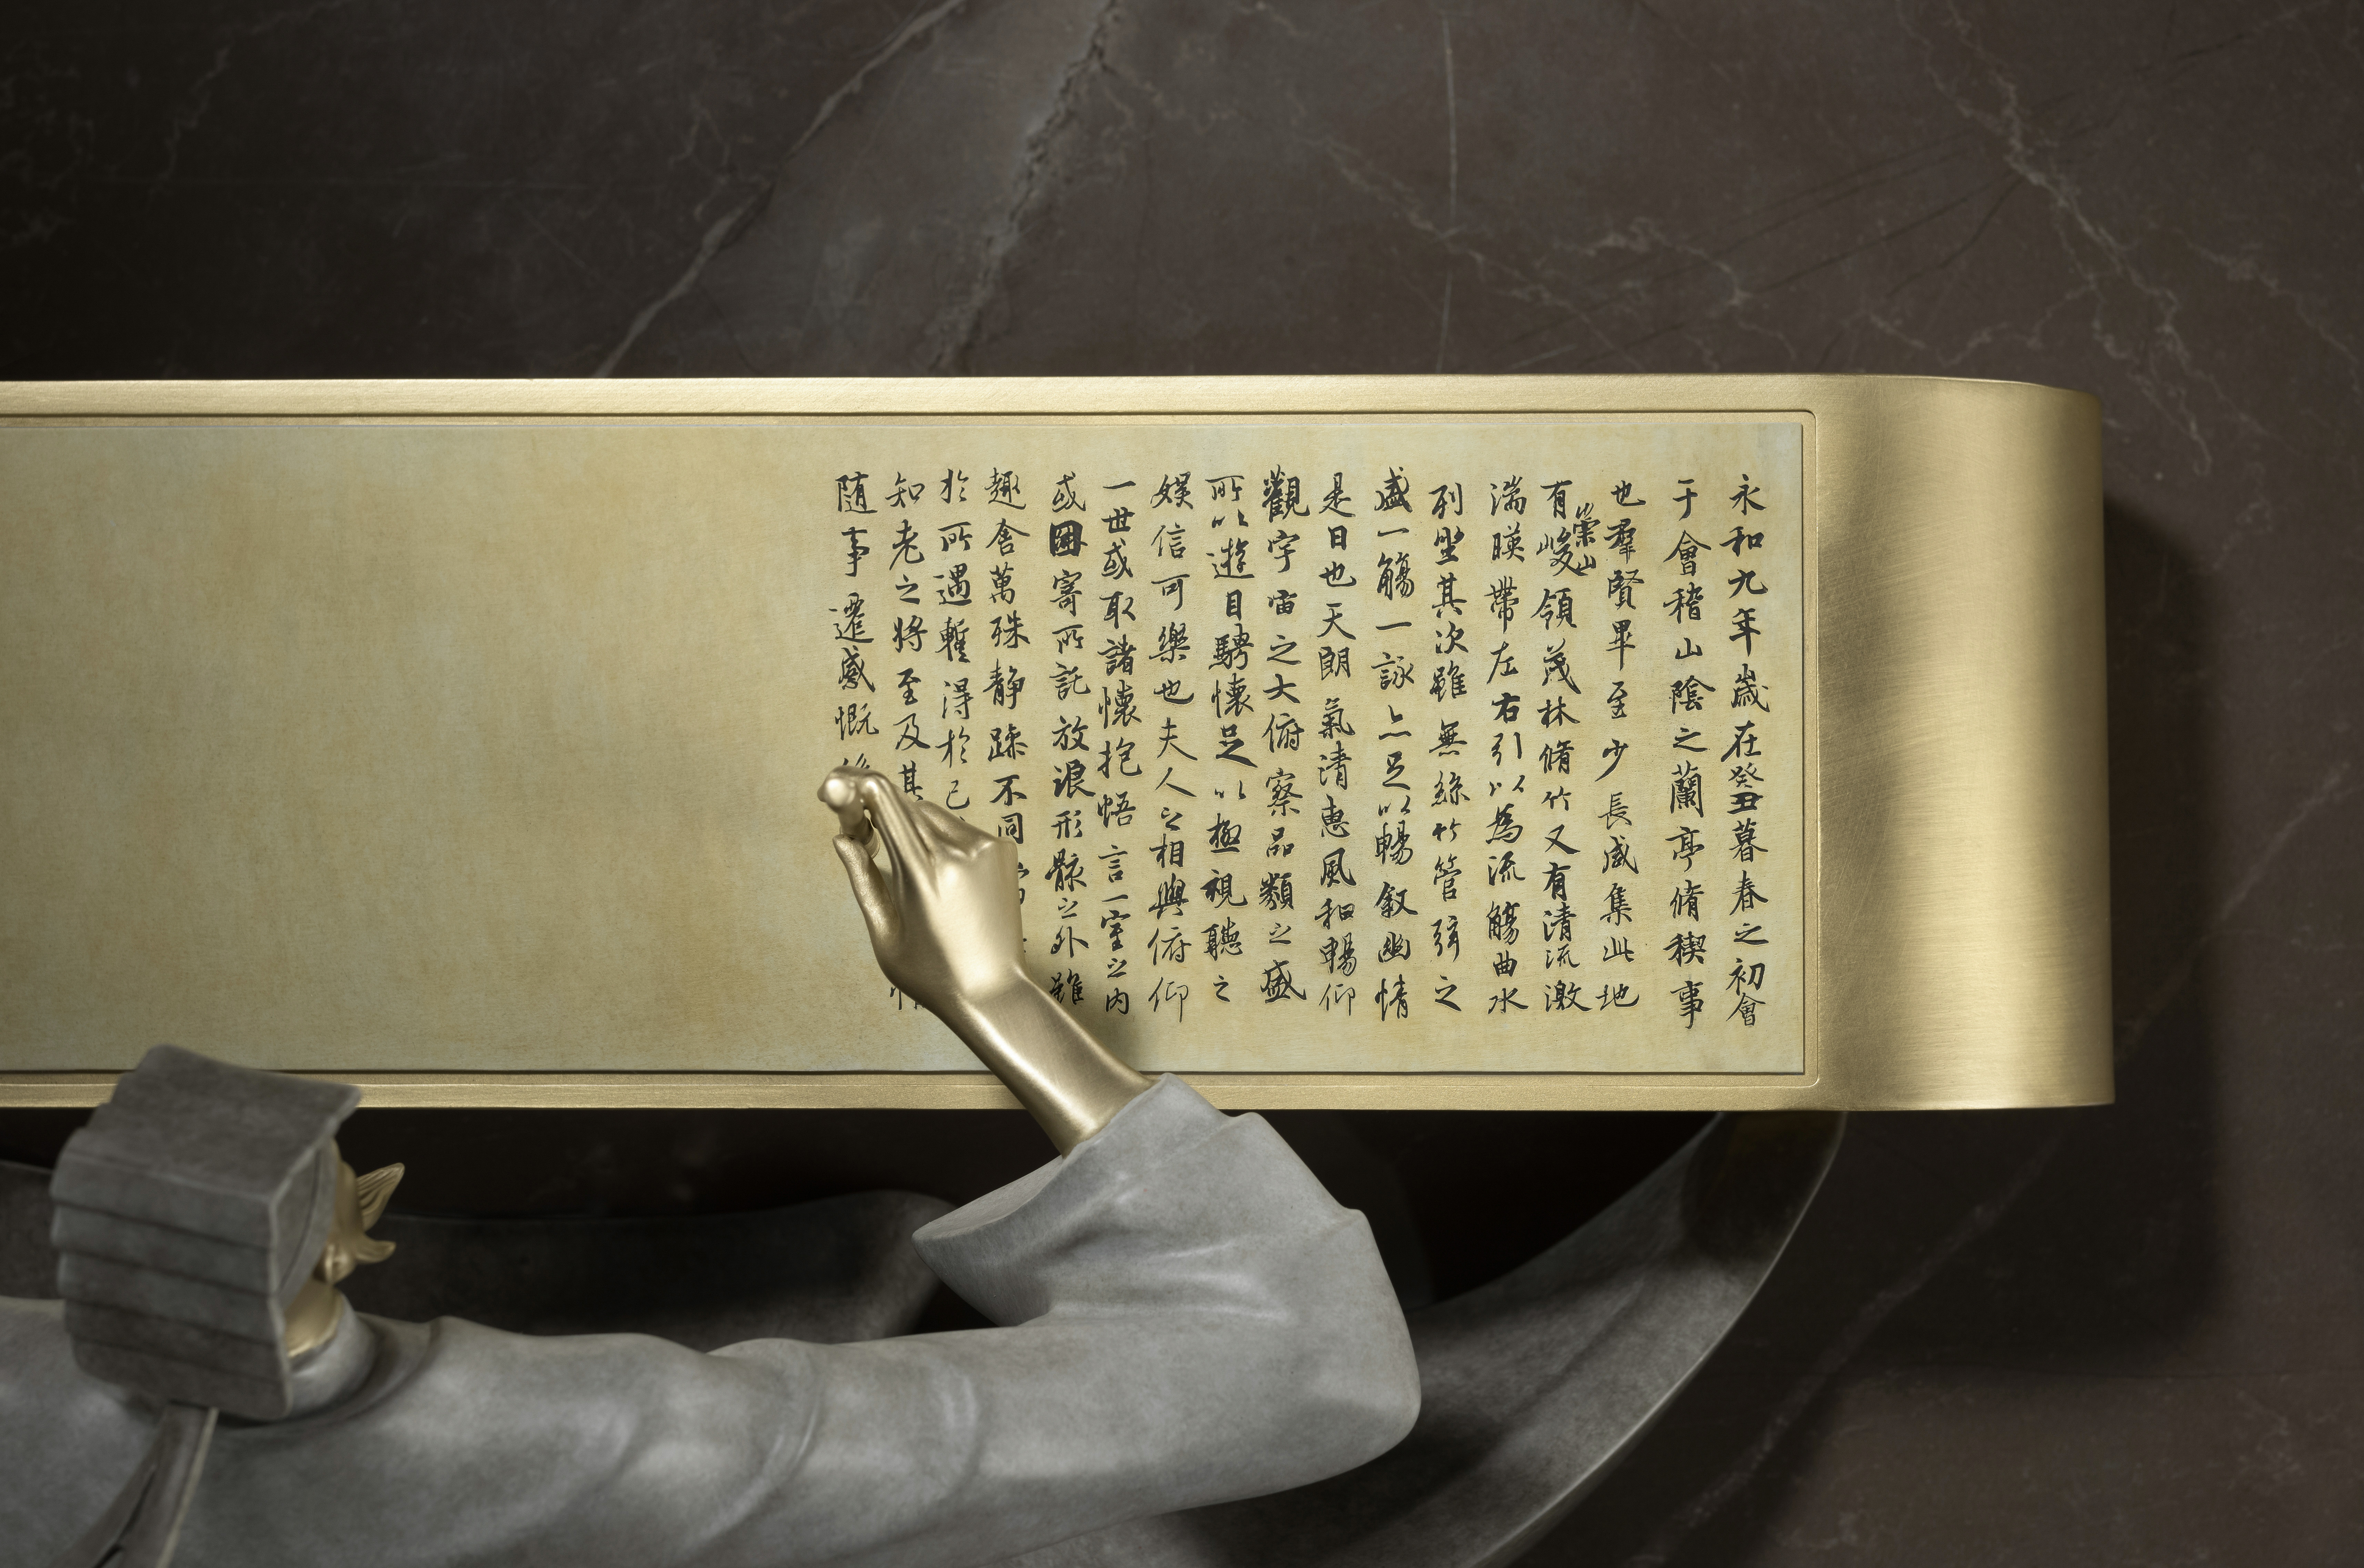 永和九年歲在癸丑暮春之初會
于會稽山陰之蘭亭脩稧事
也羣賢畢至少長咸集此地
有崇山峻領茂林脩竹又有清流激
湍暎帶左右引以為流觴曲水
列坐其次雖無絲竹管弦之
盛一觴一詠亦足以暢叙幽情
是日也天朗氣清惠風和暢仰
觀宇宙之大俯察品類之盛
所以遊目騁懷足以極視聽之
娛信可樂也夫人之相與俯仰
一世或取諸懷抱悟言一室之內
或因寄所託放浪形骸之外雖
趣舍萬殊静躁不同
於所遇蹔得於己
知老之将至及其
随事遷感慨